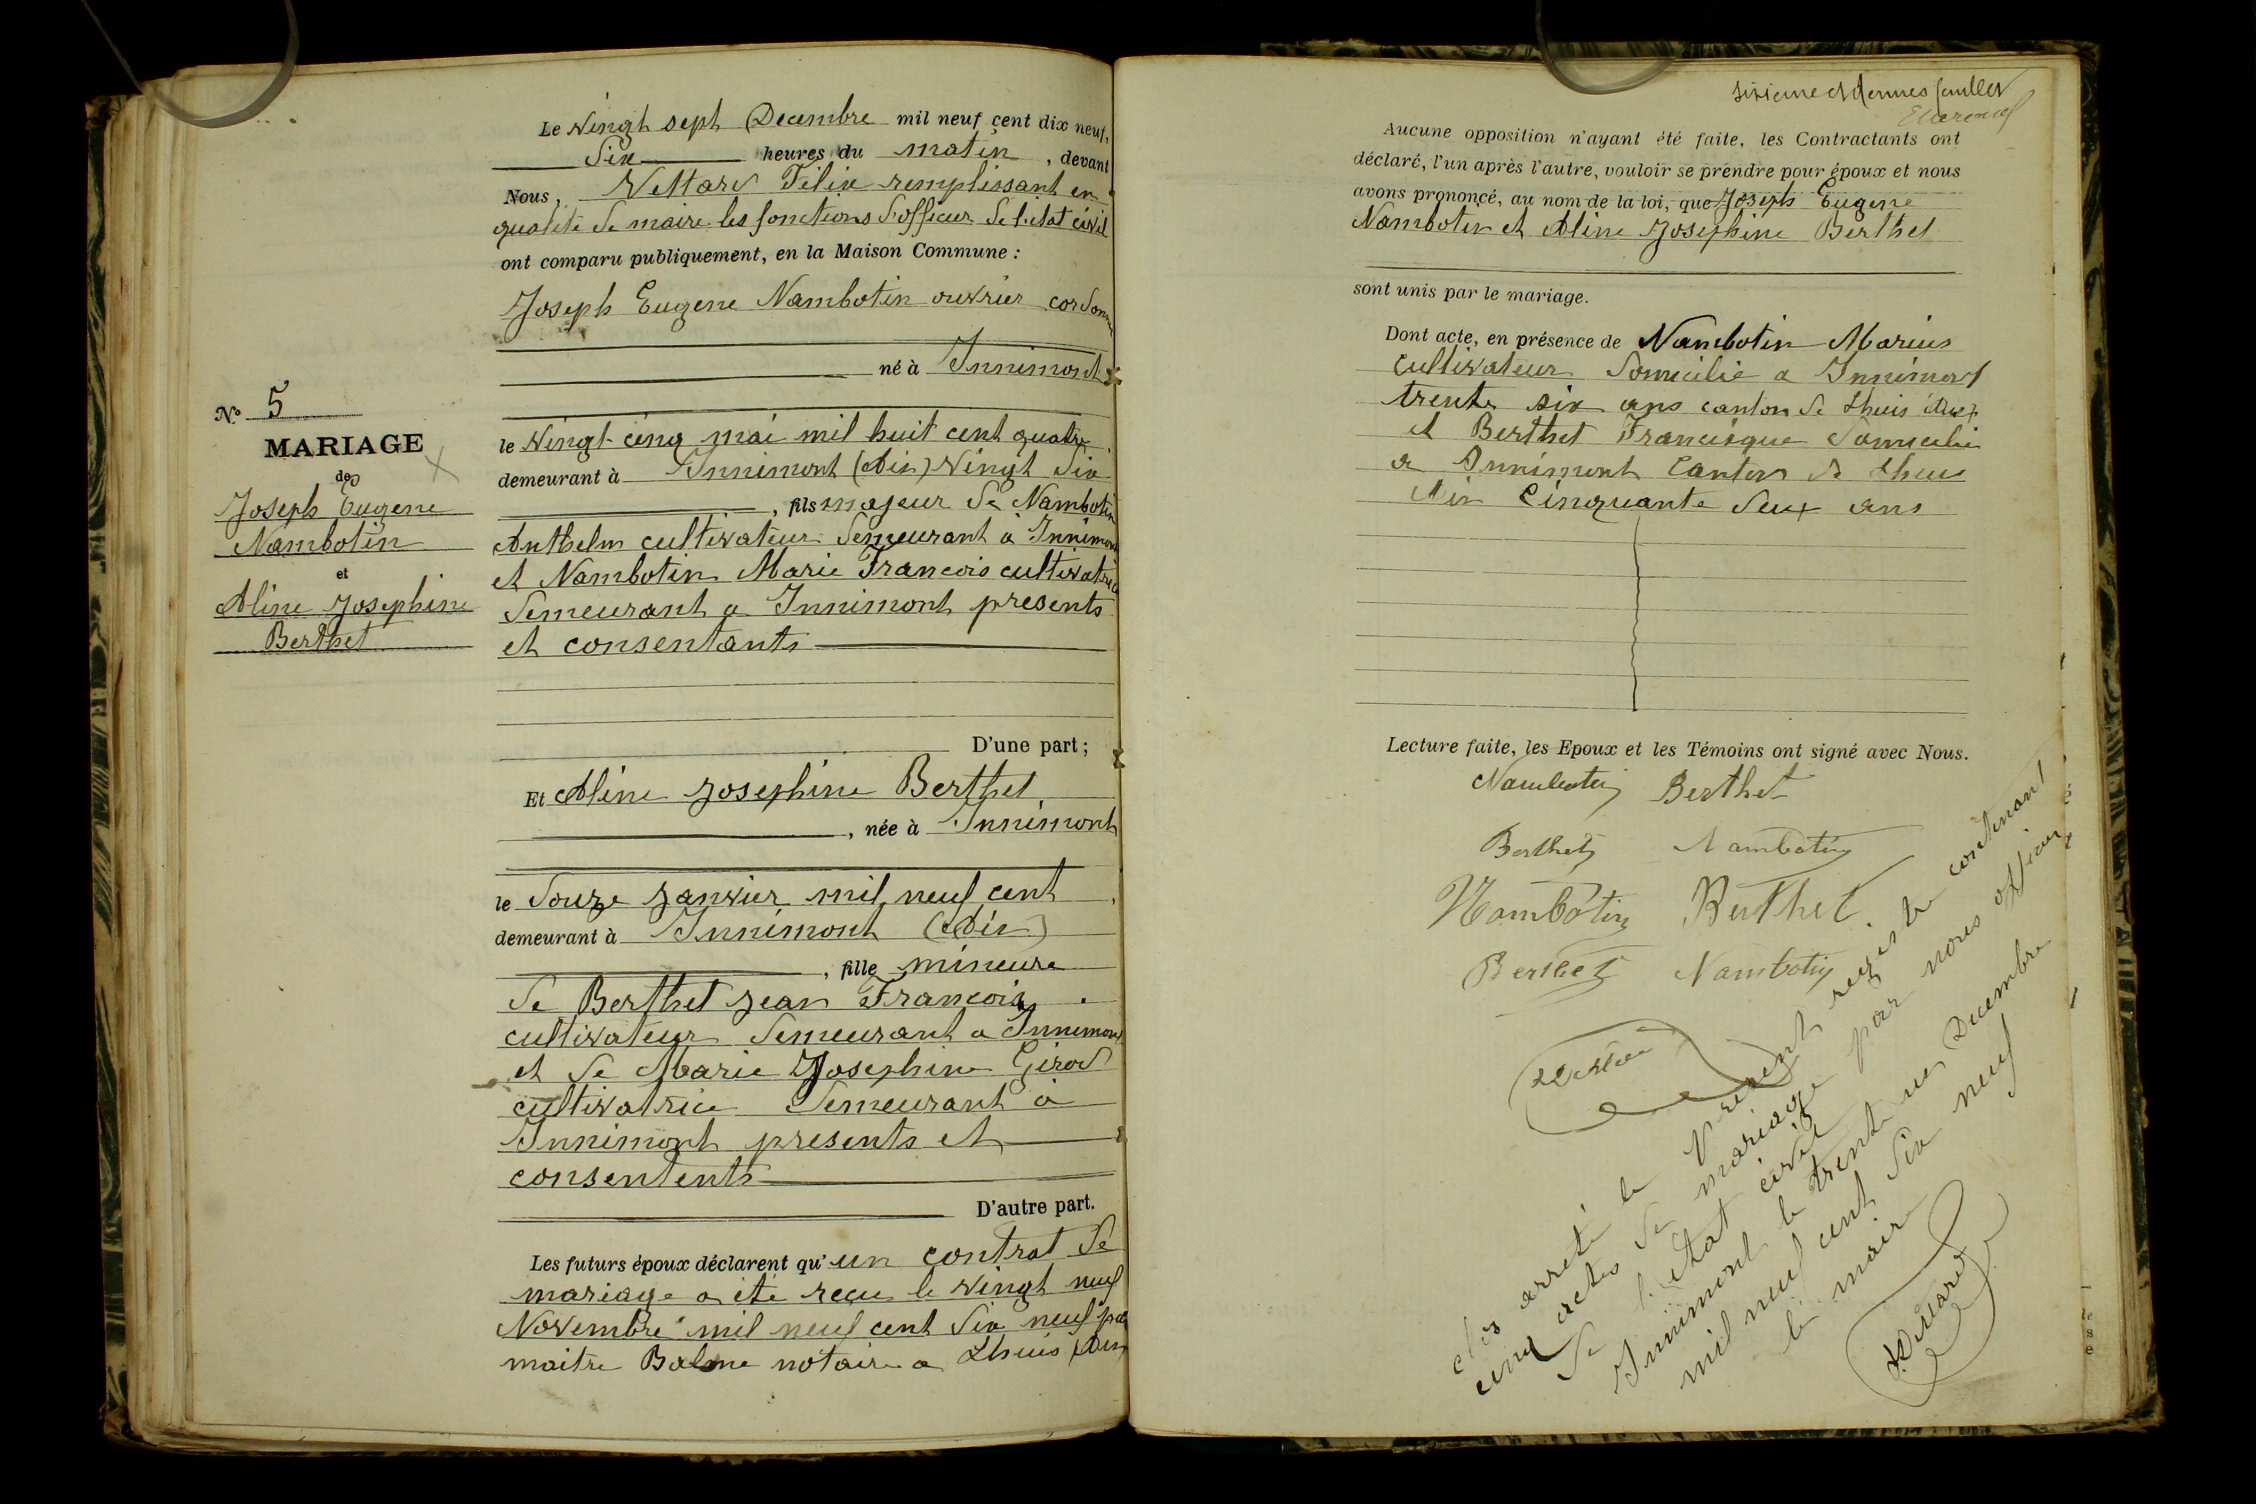 Le Vingt sept Decembre mil neuf cent dix neuf,
Dix heures du matin, devant
Nous, Vettard Félix remplissant en
qualité de maire les fonctions d'officier de l'état civil
ont comparu publiquement, en la Maison Commune :
Joseph Eugene Nambotin ouvrier cordonn
né à Innimont
No 5
MARIAGE
de
Joseph Eugene
Nambotin
et
Aline Josephine
Berthet
le Vingt cinq mai mil huit cent quatre
demeurant à Innimont (Ain) Vingt dix
, fils majeur de Nambotin
Anthelm cultivateur demeurant à Innimont
et Nambotin Marie Francois cultivatrice
demeurant a Innimont presents
et consentants
D'une part ;
Et Aline Josephine Berthet
, née à Innimont
le douze Janvier mil neuf cent
demeurant à Innimont (Ain)
, fille mineure
de Berthet Jean Francois
cultivateur demeurant a Innimont
et de Marie Josephine Girod
cultivatrice demeurant à
Innimont presents et
consentents
D'autre part.
Les futurs époux déclarent qu'un contrat de
mariage a été reçu le vingt neuf
Novembre mil neuf cent dix neuf par
maitre Balme notaire a Lhuis (Ain
feuillet
Aucune opposition n'ayant été faite, les Contractants ont
déclaré, l'un après l'autre, vouloir se prendre pour époux et nous
avons prononcé, au nom de la loi, que Joseph Eugene
Nambotin et Aline Josephine Berthet
sont unis par le mariage.
Dont acte, en présence de Nambotin Marius
cultivateur domicilié a Innimont
trente six ans canton de Lhuis (Ain)
et Berthet Francisque domicilié
a Innimont Canton de Lhuis
Ain Cinquante deux ans
Lecture faite, les Epoux et les Témoins ont signé avec Nous.
Nambotin Berthet
Berthet Nambotin
Nambotin Berthet
Berthet Nambotin
Vettard
clos arreté le présent registre contenant
cinq actes de mariage par nous officier
de l'état civil
Innimont le trente un Decembre
mil neuf cent dix neuf
le maire
Vettard